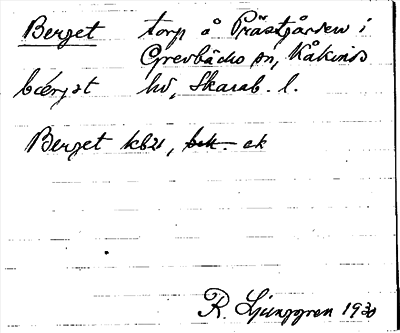 Berget torp å Prästgården i
Grevbäcks sn, Kåkinds
bærjət hd, Skarab. l.
Berget kb21, ek
R. Ljunggren 1930